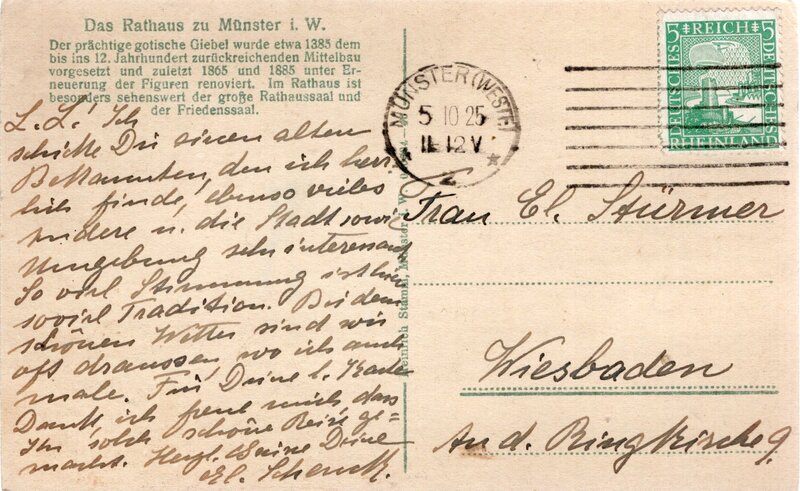 Das Rathaus zu Münster i. W.
Der prächtige gotische Giebel wurde etwa 1385 dem
bis ins 12. Jahrhundert zurückreichenden Mittelbau
vorgesetzt und zuletzt 1865 und 1885 unter Er-
neuerung der Figuren renoviert. Im Rathaus ist
besonders sehenswert der große Rathaussaal und
der Friedenssaal.
L. L! Ich
schicke Dir einen alten
Bekannten, den ich herr
lich finde, ebenso vieles
andere u. die Stadt sowie
Umgebung sehr interessant
So viel Stimmung ist hier
soviel Tradition. Bei dem
schönen Wetter sind wir
oft draussen, wo ich auch
male. Für Deine l. Karte
Dank, ich freue mich dass
Ihr solch schöne Reise ge=
macht. Herzl. Deine
El. Schenck.
Heinrich Stamm, Münster i. W.
MÜNSTER (WESTF)
5 10 25
11-12 V
DEUTSCHES REICH
5 5
RHEINLAND
Frau El. Stürmer
Wiesbaden
An d. Ringkirche 9.